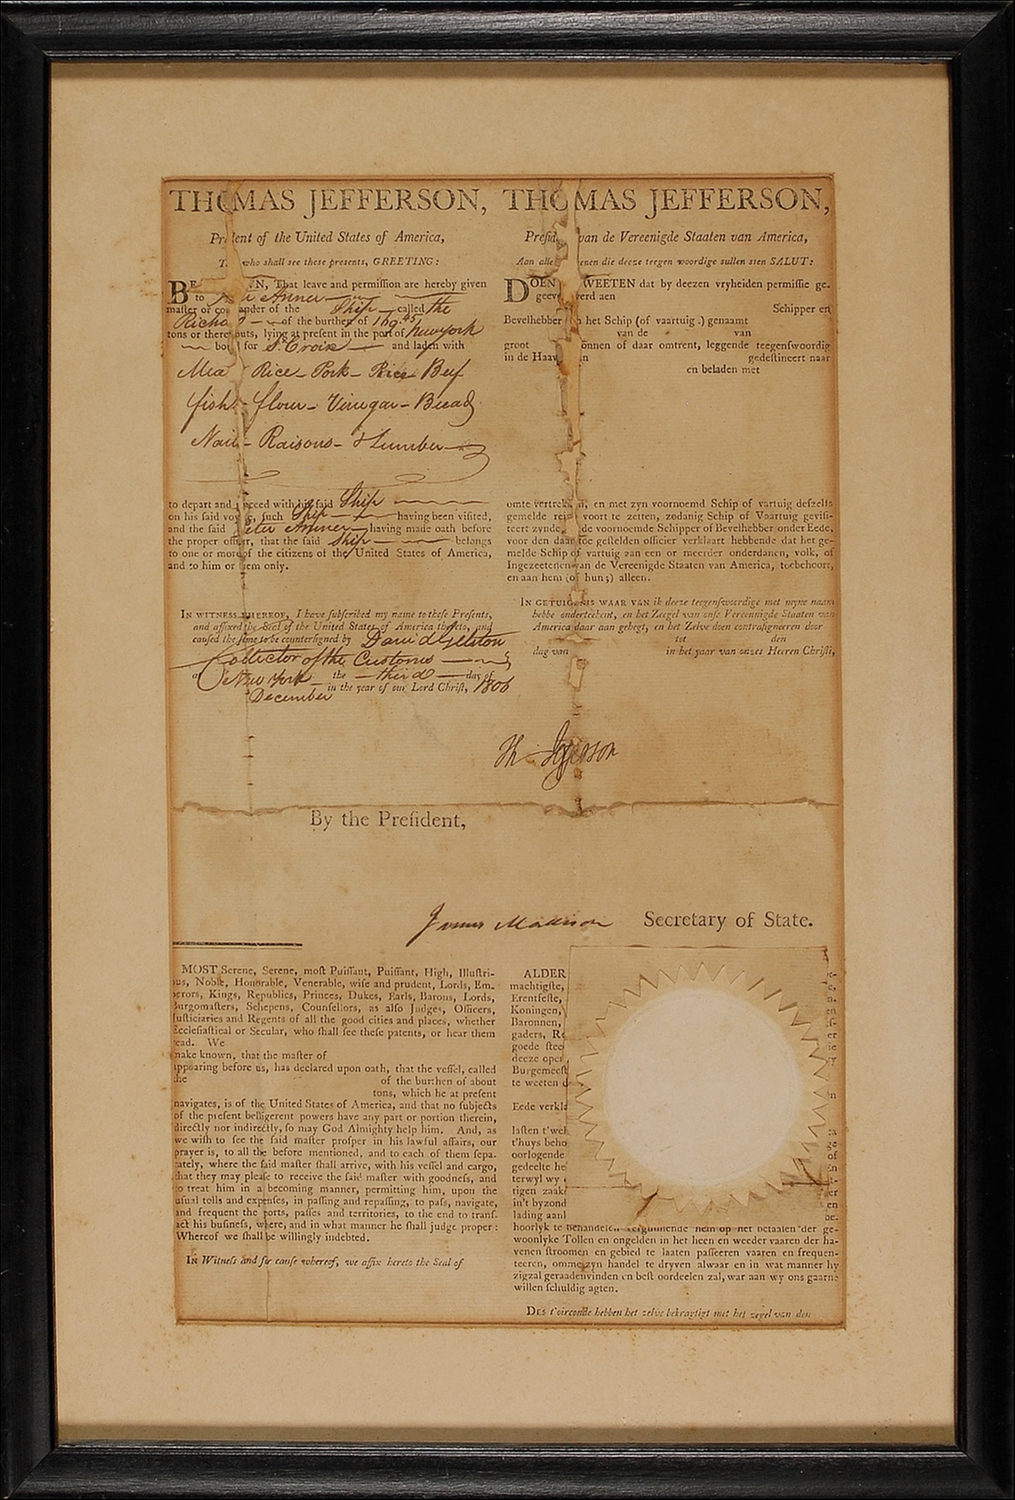 THOMAS JEFFERSON,
President of the United States of America,
who shall see these presents, GREETING:
BE N, That leave and permiſſion are hereby given
to Anner
maſter or commander of the Ship called the
Richa of the burthen of 169 45
tons or thereabouts, lying at preſent in the port of Newyork
bound for St Croix and laden with
Mea Rice - Pork - Rice Beef
fish - flour - Vinegar - Bread
Nail - Raisons - & Lumber
to depart and proceed with his ſaid Ship
on his ſaid voyage, ſuch Ship having been viſited,
and the ſaid Peter Anner having made oath before
the proper officer, that the ſaid Ship belongs
to one or more of the citizens of the United States of America,
and to him or them only.
IN WITNESS WHEREOF, I have ſubſcribed my name to theſe Preſents,
and affixed the Seal of the United States of America thereto, and
cauſed the ſame to be counterſigned by David Gelston
Collector of the Customs
at New York the third day of
December in the year of our Lord Chriſt, 1806
THOMAS JEFFERSON,
Preſid van de Vereenigde Staaten van America,
Aan alle enen die deeze teegen woordige sullen sien SALUT:
DOEN WEETEN dat by deezen vryheiden permiſſie ge-
geev erd aen
Schipper en
Bevelhebber n het Schip (of vaartuig.) genaamt
van de van
groot onnen of daar omtrent, leggende teegenſwoordig
in de Haav n gedeſtineert naar
en beladen met
omte vertrek n, en met zyn voornoemd Schip of vartuig deſzelfs
gemelde reis voort te zetten, zodanig Schip of Vaartuig geviſi-
teert zynde, de voornoemde Schipper of Bevelhebber onder Eede,
voor den daar toe geſtelden officier verklaart hebbende dat het ge-
melde Schip of vartuig aan een or meerder onderdanen, volk, of
Ingezeetenen van de Vereenigde Staaten van America, toebehoort,
en aan hem (of hun;) alleen.
IN GETUIGENIS WAAR VAN ik deeze teegenſwoordige met myne naam
hebbe onderteekent, en het Zeegel van onſe Vereennigde Staaten van
America daar aan gehegt, en het Zelve doen contraſigneren door
tot den
dag van in het jaar van onzes Heeren Chriſti,
Th: Jefferson
By the Preſident,
James Madison Secretary of State.
MOST Serene, Serene, moſt Puiſſant, Puiſſant, High, Illuſtri-
ous, Noble, Honorable, Venerable, wiſe and prudent, Lords, Em-
perors, Kings, Republics, Princes, Dukes, Earls, Barons, Lords,
Burgomaſters, Schepens, Counſellors, as alſo Judges, Officers,
Juſticiaries and Regents of all the good cities and places, whether
Eccleſiaſtical or Secular, who ſhall ſee theſe patents, or hear them
read. We
make known, that the maſter of
appearing before us, has declared upon oath, that the veſſel, called
the of the burthen of about
tons, which he at preſent
navigates, is of the United States of America, and that no ſubjects
of the preſent belligerent powers have any part or portion therein,
directly nor indirectly, ſo may God Almighty help him. And, as
we wiſh to ſee the ſaid maſter proſper in his lawful affairs, our
prayer is, to all the before mentioned, and to each of them ſepa-
rately, where the ſaid maſter ſhall arrive, with his veſſel and cargo,
that they may pleaſe to receive the ſaid maſter with goodneſs, and
to treat him in a becoming manner, permitting him, upon the
uſual tolls and expenſes, in paſſing and repaſſing, to paſs, navigate,
and frequent the ports, paſſes and territories, to the end to tranſ-
act his buſineſs, where, and in what manner he ſhall judge proper:
Whereof we ſhall be willingly indebted.
IN Witneſs and for cauſe whereof, we affix hereto the Seal of
ALDER
machtigſte,
Erentfeſte,
Koningen,
Baronnen,
gaders, Re
goede ſtee
deeze open
Burgemeeſt
te weeten d
Eede verkla
laſten t'wel
t'huys beho
oorlogende
gedeelte he
terwyl wy
tigen zaak
in't byzond
lading aanl
hoorlyk te behandelen, vergunnende hem op het betaalen der ge-
woonlyke Tollen en ongelden in het heen en weeder vaaren der ha-
venen ſtroomen en gebied te laaten paſſeeren vaaren en frequen-
teeren, omme zyn handel te dryven alwaar en in wat manner hy
zigzal geraadenvinden en beſt oordeelen zal, war aan wy ons gaarne
willen ſchuldig agten.
DES t'oirconde hebben het zelve bekragtigt met het zegel van den